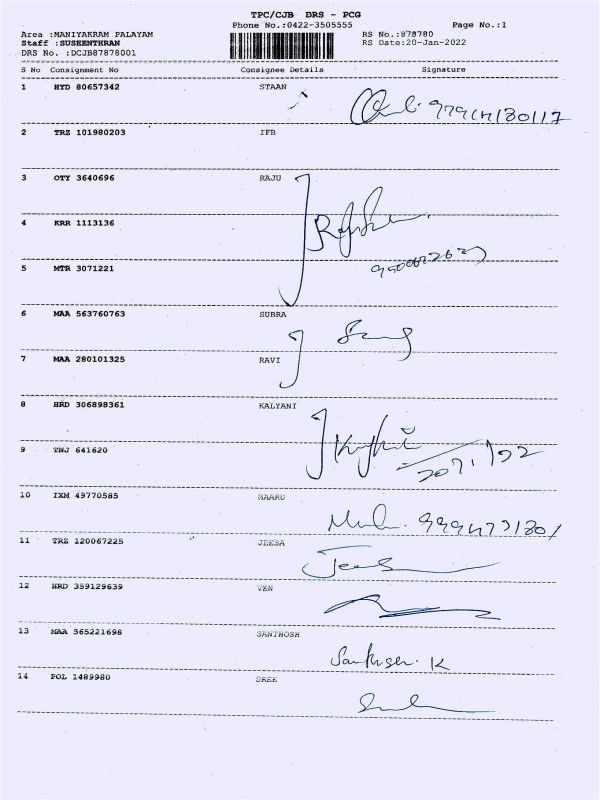 TPC/CJB DRS - PCG
Phone No.:0422-3505555 Page No.:1
Area :MANIYAKRAM PALAYAM RS No.:878780
Staff :SUSEENTHRAN RS Date:20-Jan-2022
DRS No. :DCJB87878001
S No Consignment No Consignee Details Signature
1 HYD 80657342 STAAN
2 TRZ 101980203 IFB
3 OTY 3640696 RAJU
4 KRR 1113136
5 MTR 3071221
6 MAA 563760763 SUBRA
7 MAA 280101325 RAVI
8 HRD 306898361 KALYANI
9 TNJ 641620
10 IXM 49770585 MAARU
11 TRZ 120067225 JEESA
12 HRD 359129639 VEN
13 MAA 565221698 SANTHOSH
14 POL 1489980 SREE